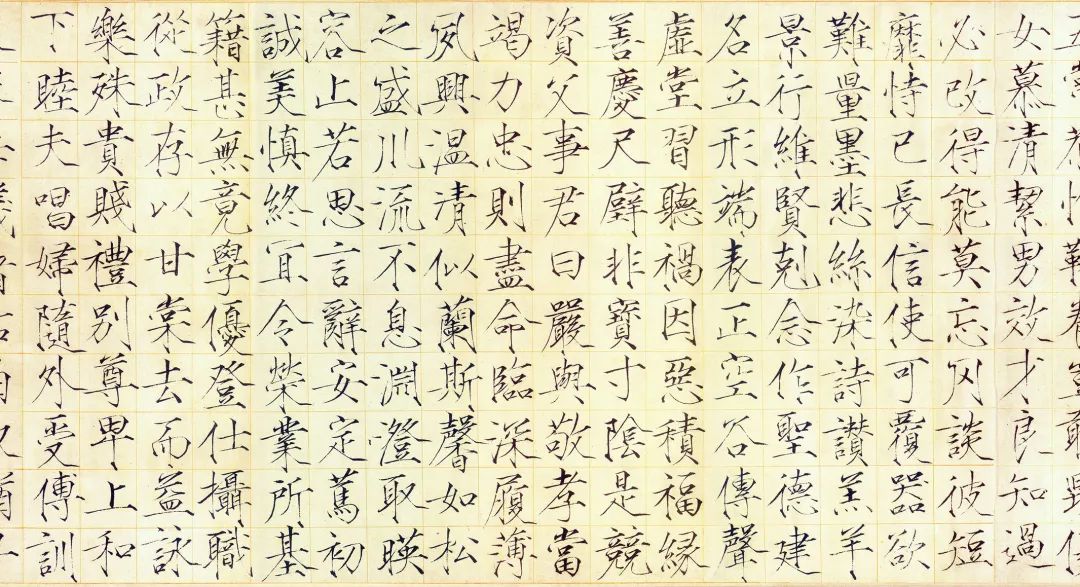 女慕清絜男效才良知過
必改得能莫忘罔談彼短
靡恃已長信使可覆器欲
難量墨悲絲染詩讚羔羊
景行維賢剋念作聖德建
名立形端表正空谷傳聲
虛堂習聽禍因惡積福緣
善慶尺璧非寶寸陰是競
資父事君曰嚴與敬孝當
竭力忠則盡命臨深履薄
夙興温清似蘭斯馨如松
之盛川流不息淵澄取暎
容止若思言辭安定篤初
誠美慎終宜令榮業所基
籍甚無竟學優登仕攝職
從政存以甘棠去而益詠
樂殊貴賤禮別尊卑上和
下睦夫唱婦隨外受傅訓